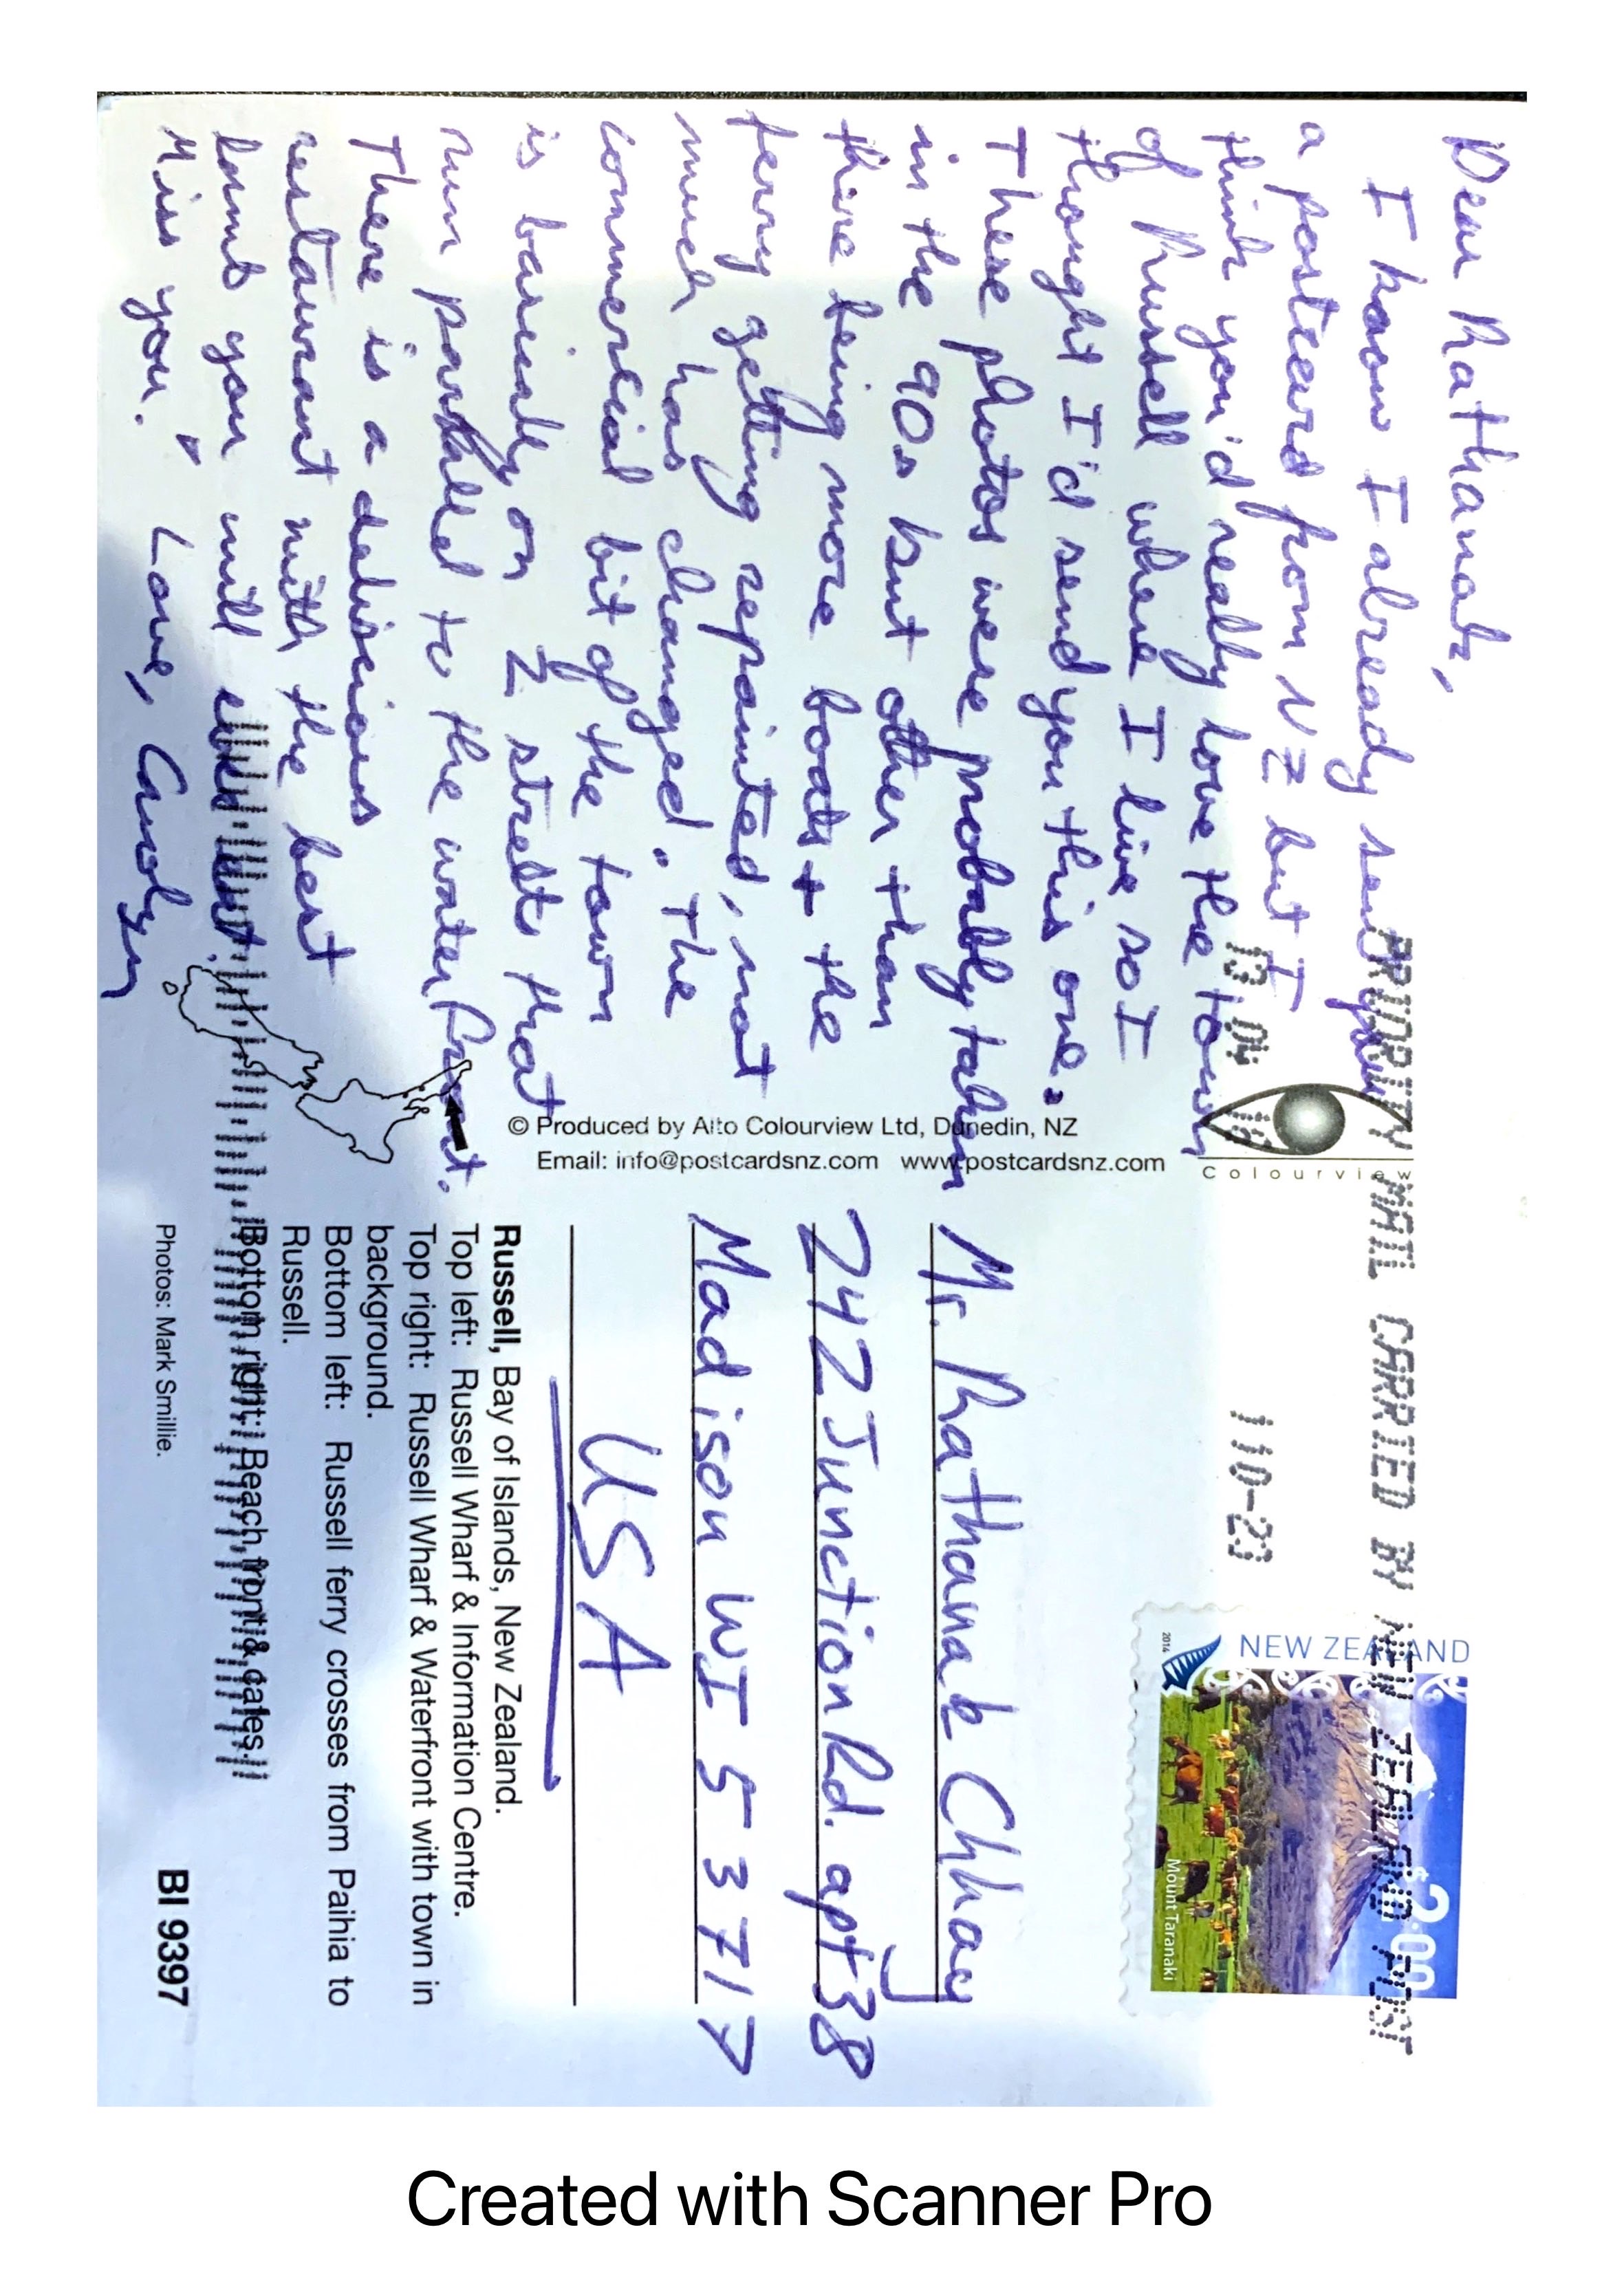 Dear Rathanak,
I know I already sent you
a postcard from NZ but I
think you'd really love the town
of Russell where I live so I
thought I'd send you this one.
These photos were probably taken
in the 90s but other than
there being more boats + the
ferry getting repainted, not
much has changed. The
commercial bit of the town
is basically on 2 streets that
run parallel to the waterfront.
There is a delicious
restaurant with the best
lamb you will ever eat.
Miss you. Love, Carolyn
PRIORITY MAIL CARRIED BY NEW ZEALAND POST
1 10-23
Colourview
© Produced by Alto Colourview Ltd, Dunedin, NZ
Email: info@postcardsnz.com www.postcardsnz.com
NEW ZEALAND
$2.00
Mount Taranaki
2014
Mr. Rathanak Chhay
242 Junction Rd. apt 38
Madison WI 53717
USA
Russell, Bay of Islands, New Zealand.
Top left: Russell Wharf & Information Centre.
Top right: Russell Wharf & Waterfront with town in
background.
Bottom left: Russell ferry crosses from Paihia to
Russell.
Bottom right: Beach front & cafes.
Photos: Mark Smillie.
BI 9397
Created with Scanner Pro